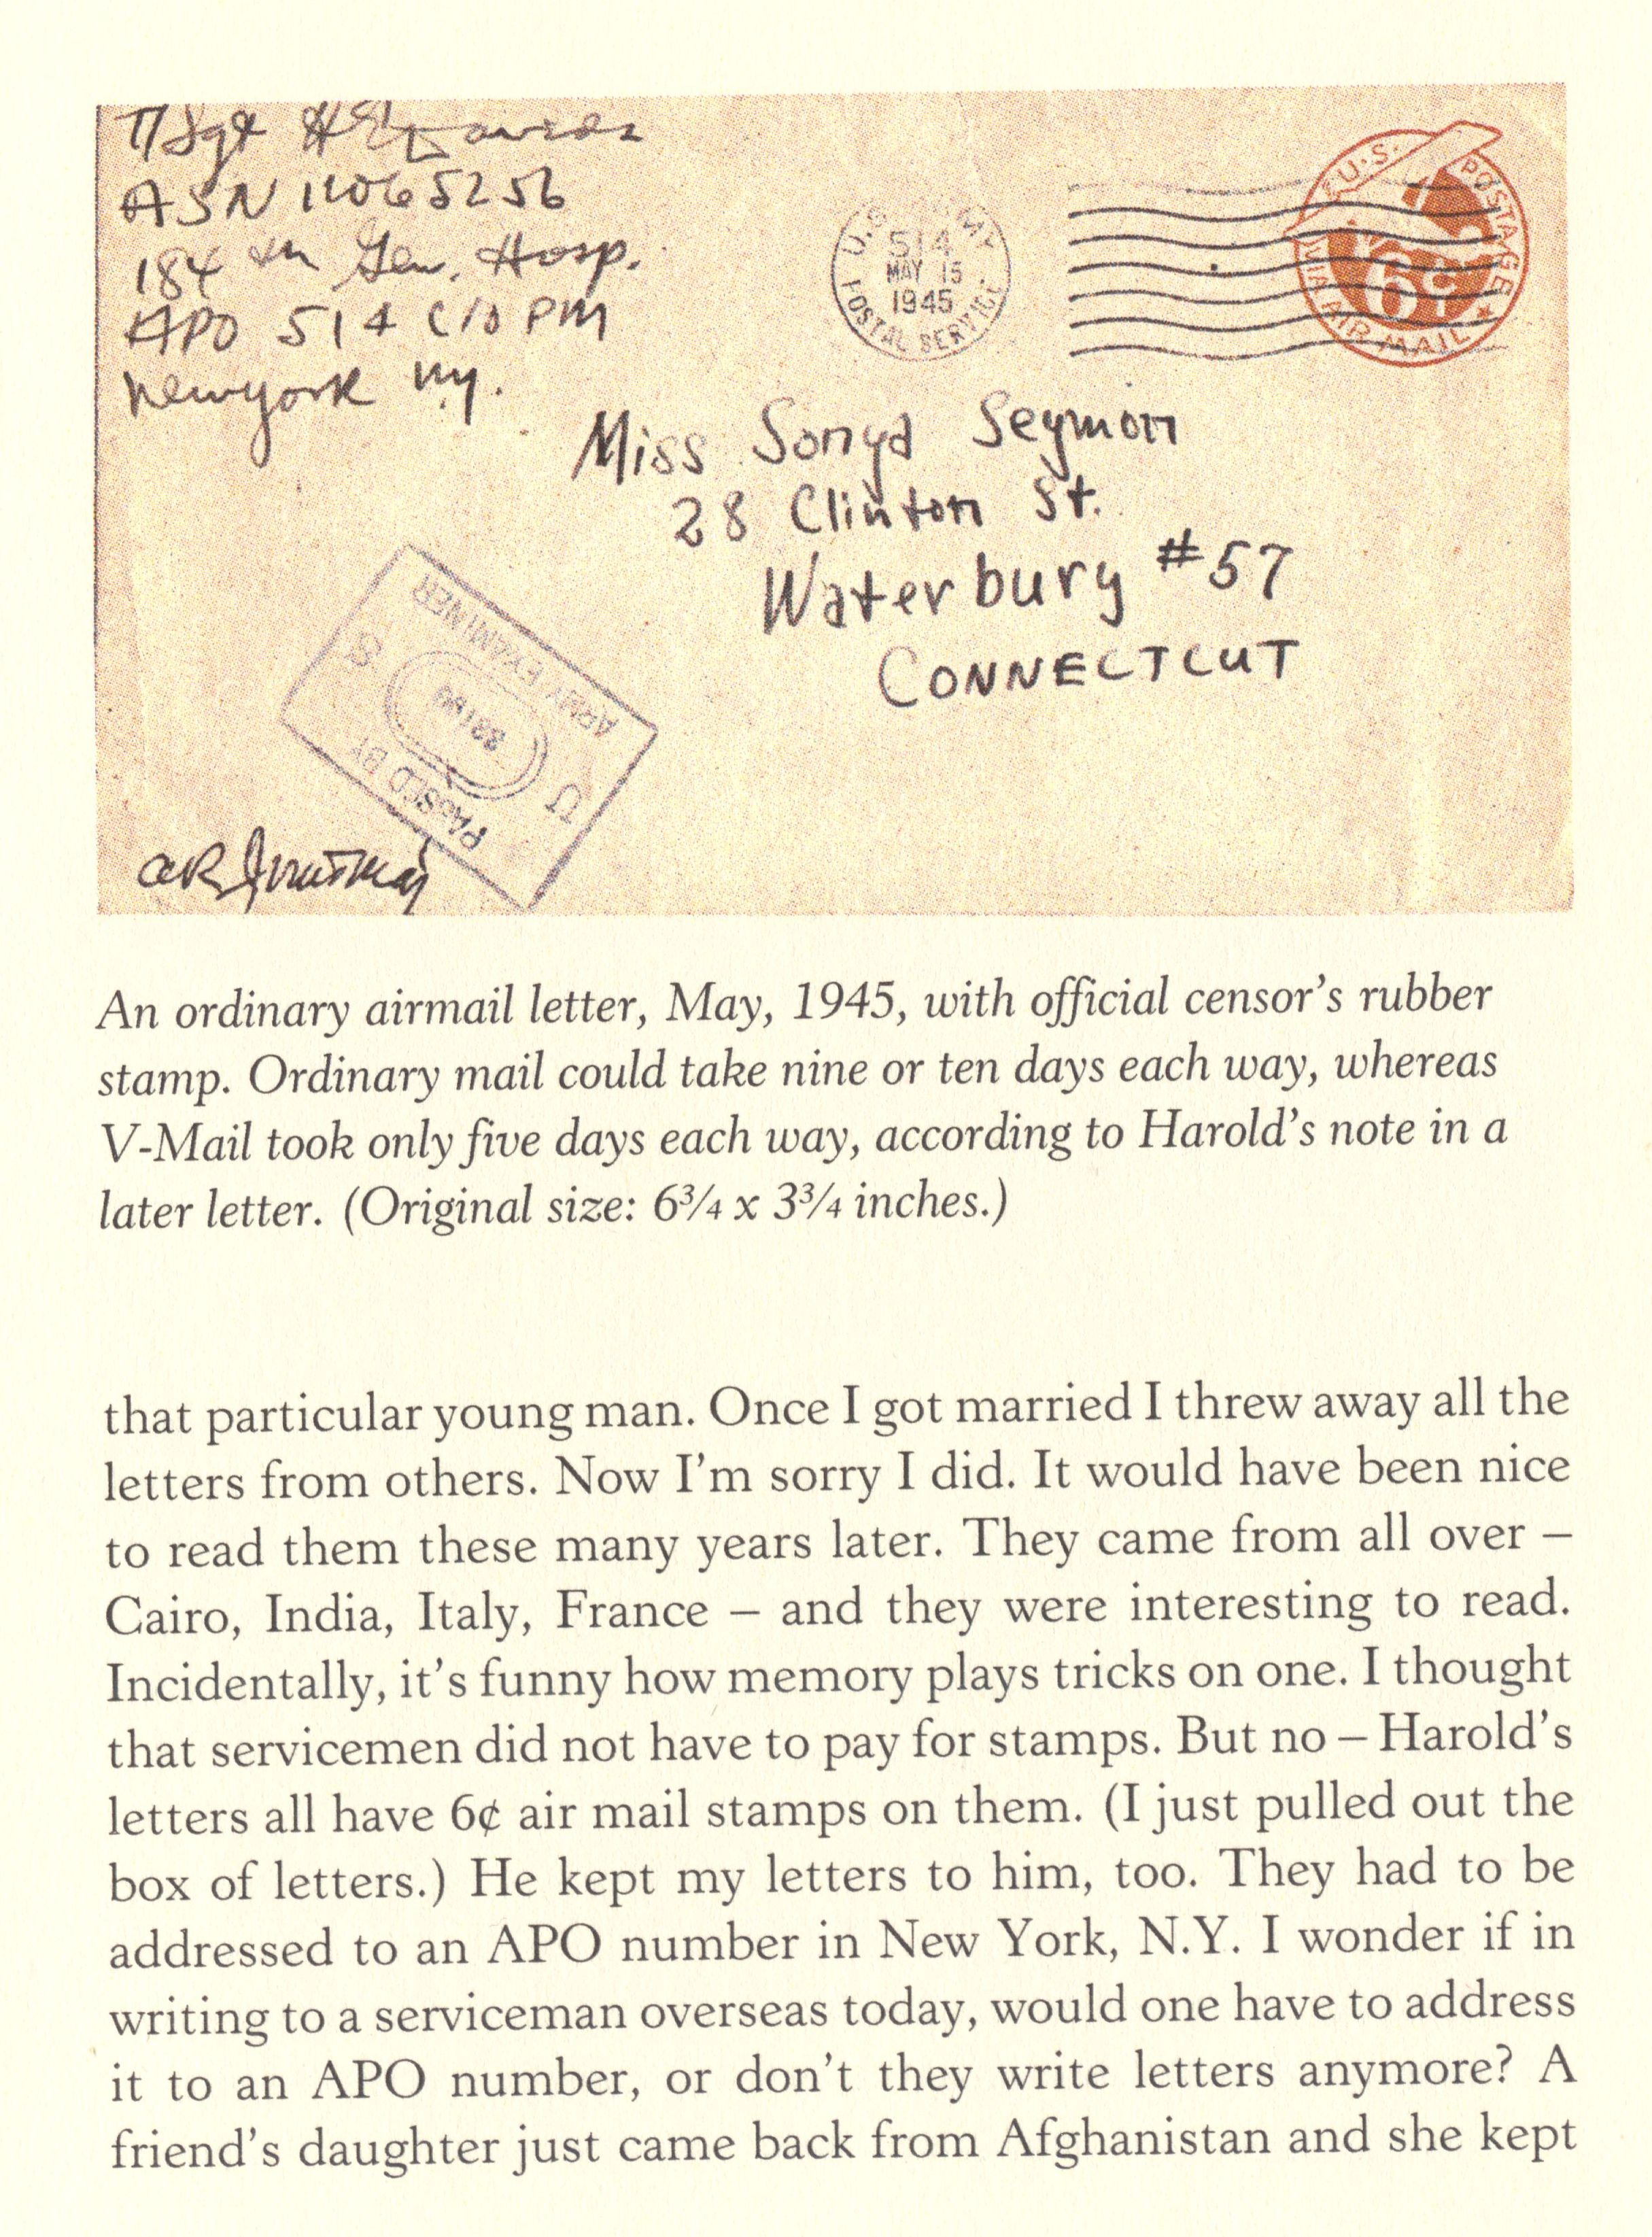 T/Sgt H
ASN 11065256
184th Gen. Hosp.
APO 514 c/o PM
New york ny.
U.S. ARMY
514
MAY 15
1945
POSTAL SERVICE
U.S. POSTAGE
6¢
VIA AIR MAIL
Miss Sonya Seymour
28 Clinton St.
Waterbury #57
CONNECTCUT
PASSED BY
U S
ARMY EXAMINER
An ordinary airmail letter, May, 1945, with official censor’s rubber
stamp. Ordinary mail could take nine or ten days each way, whereas
V-Mail took only five days each way, according to Harold’s note in a
later letter. (Original size: 6¾ x 3¾ inches.)
that particular young man. Once I got married I threw away all the
letters from others. Now I’m sorry I did. It would have been nice
to read them these many years later. They came from all over –
Cairo, India, Italy, France – and they were interesting to read.
Incidentally, it’s funny how memory plays tricks on one. I thought
that servicemen did not have to pay for stamps. But no – Harold’s
letters all have 6¢ air mail stamps on them. (I just pulled out the
box of letters.) He kept my letters to him, too. They had to be
addressed to an APO number in New York, N.Y. I wonder if in
writing to a serviceman overseas today, would one have to address
it to an APO number, or don’t they write letters anymore? A
friend’s daughter just came back from Afghanistan and she kept